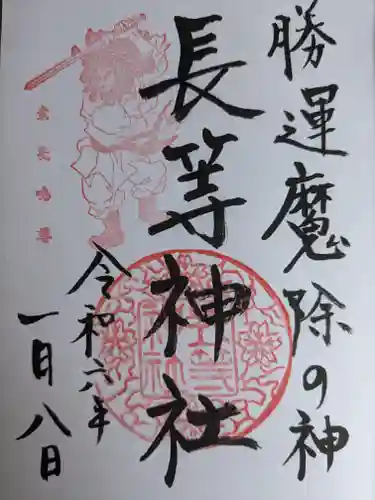 勝運魔除の神
長等神社
令和六年
一月八日
素戔嗚尊